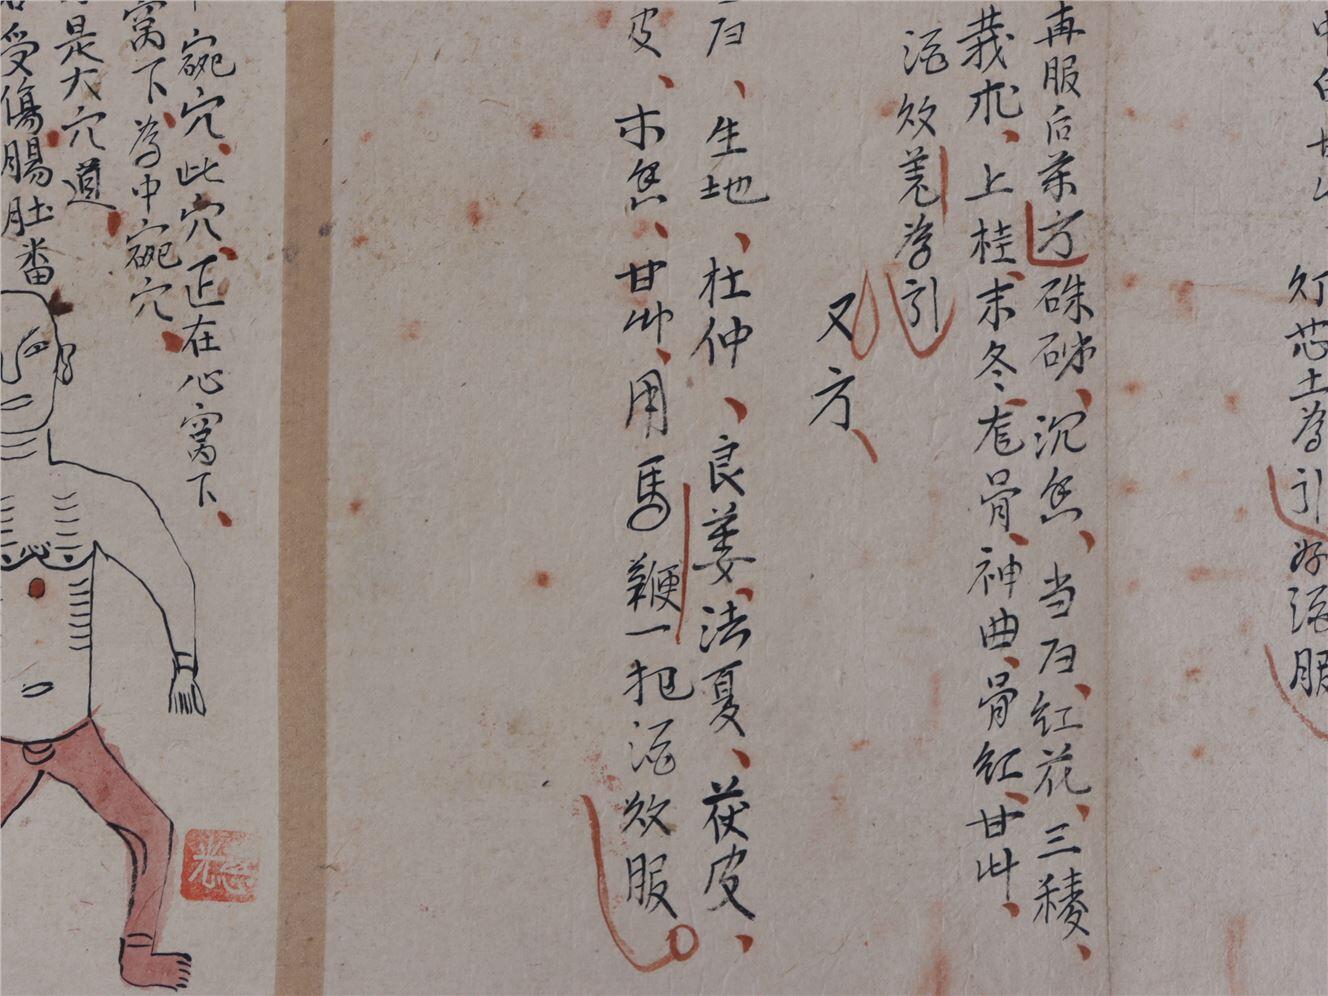 灯芯土為引好酒服
再服后藥方硃砂、沉香、当归、红花、三稜、
莪朮、上桂、末冬、尨骨、神曲、骨红、甘艸、
酒效羌為引
又方、
归、生地、杜仲、良姜、法夏、茯皮、
皮、木香、甘艸、用馬鞭一把酒效服
碗穴、此穴、正在心窝下、
窝下、為中碗穴、
是大穴道、
受傷腸肚番